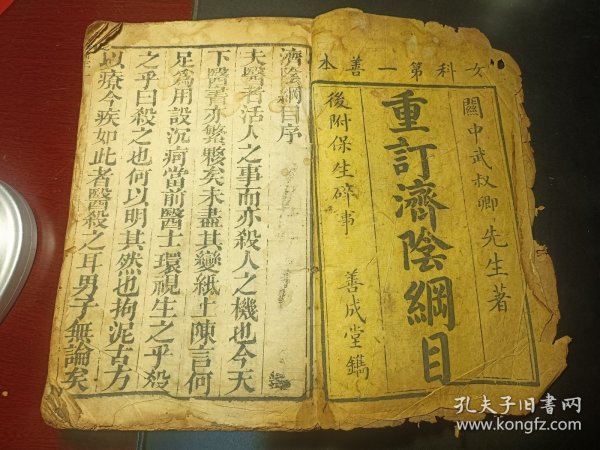 女科第一善本
關中武叔卿先生著
重訂濟陰綱目
後附保生碎事
善成堂鐫
濟陰綱目序
夫醫者活人之事而亦殺人之機也今天
下醫書亦繁夥矣未盡其變紙上陳言何
足爲用設沉痾當前醫士環視生之乎殺
之乎曰殺之也何以明其然也拘泥古方
以療今疾如此者醫殺之耳男子無論矣
孔夫子旧书网
www.kongfz.com